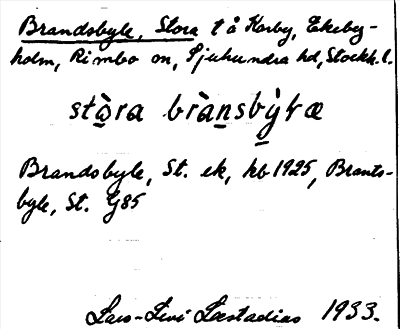 Brandsbyle, Stora t å Karby, Ekeby-
holm, Rimbo sn, Sjuhundra hd, Stockh. l.
stàra brànsbỳlæ
Brandsbyle, St. ek, hb 1925, Brants-
byle, St. G85
Lars-Levi Læstadius 1933.